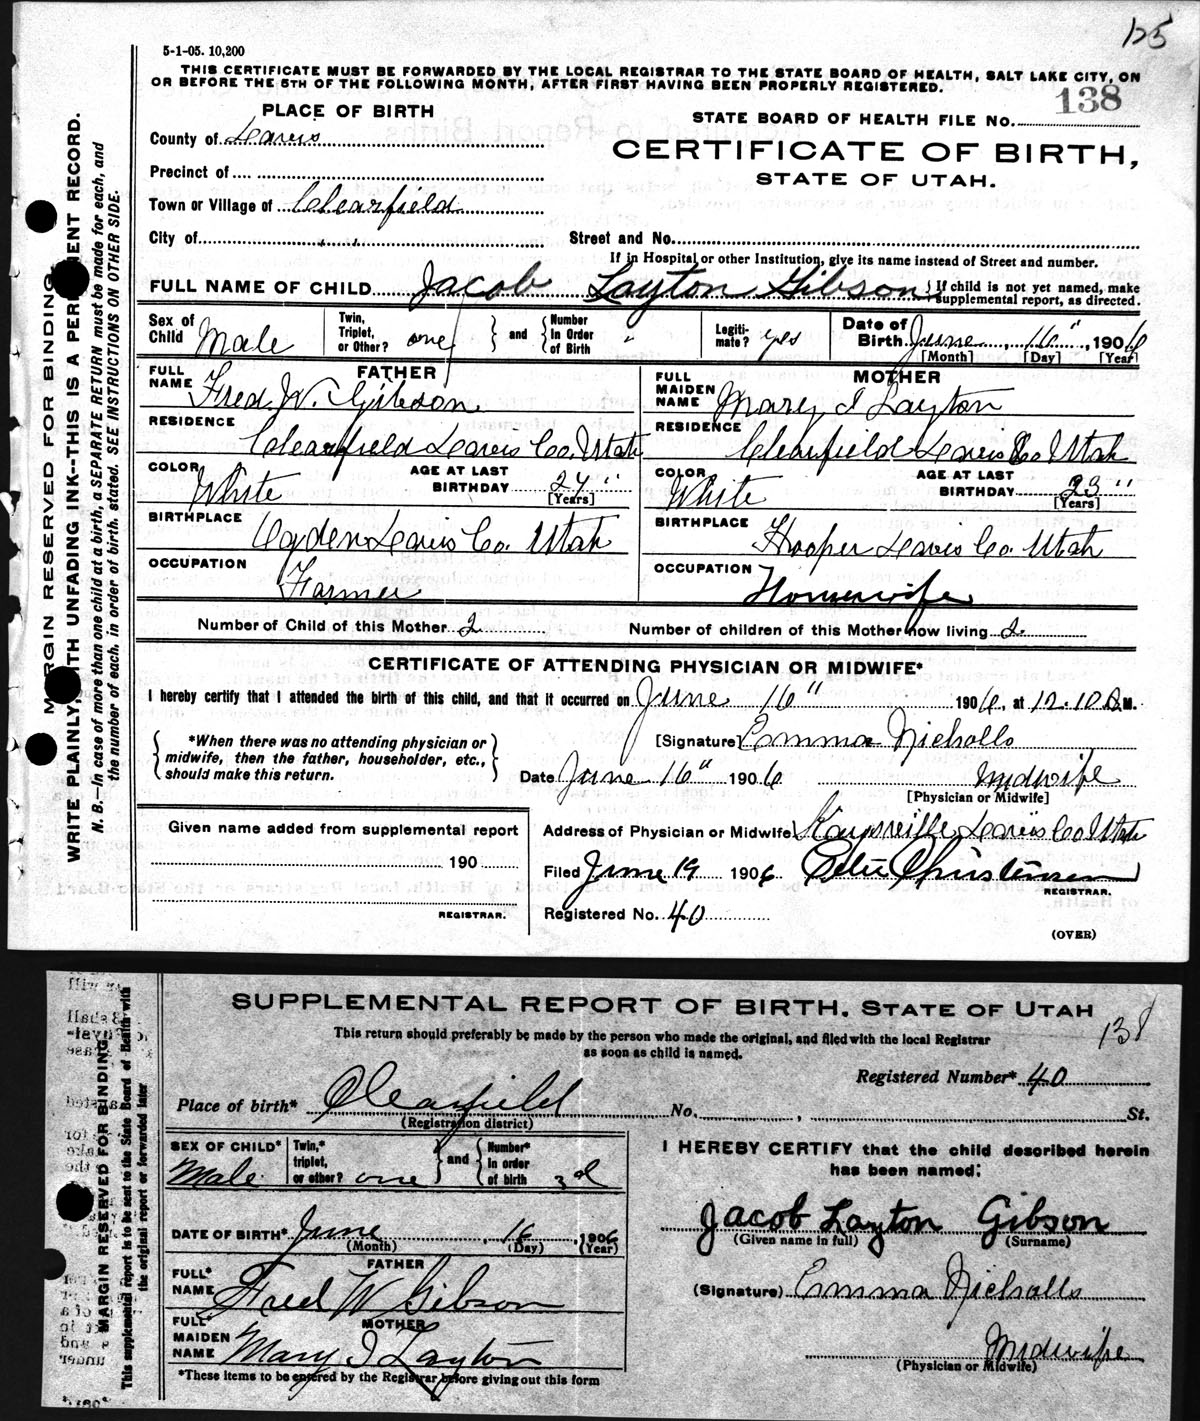 125
5-1-05. 10,200
THIS CERTIFICATE MUST BE FORWARDED BY THE LOCAL REGISTRAR TO THE STATE BOARD OF HEALTH, SALT LAKE CITY, ON
OR BEFORE THE 5TH OF THE FOLLOWING MONTH, AFTER FIRST HAVING BEEN PROPERLY REGISTERED.
PLACE OF BIRTH
STATE BOARD OF HEALTH FILE No. 138
County of Davis
CERTIFICATE OF BIRTH,
STATE OF UTAH.
Precinct of
Town or Village of Clearfield
City of
Street and No.
If in Hospital or other Institution, give its name instead of Street and number.
FULL NAME OF CHILD Jacob Layton Gibson
If child is not yet named, make
supplemental report, as directed.
Sex of Child Male
Twin, Triplet, or Other? one
and
Number In Order of Birth "
Legiti-mate? yes
Date of Birth June 16", 1906
[Month] [Day] [Year]
FATHER
FULL NAME Fred. W. Gibson
RESIDENCE Clearfield Davis Co. Utah
COLOR White
AGE AT LAST BIRTHDAY 24 "
[Years]
BIRTHPLACE Ogden Davis Co. Utah
OCCUPATION Farmer
MOTHER
FULL MAIDEN NAME Mary I Layton
RESIDENCE Clearfield Davis Co Utah
COLOR White
AGE AT LAST BIRTHDAY 23 "
[Years]
BIRTHPLACE Hooper Davis Co. Utah
OCCUPATION Housewife
Number of Child of this Mother 2
Number of children of this Mother now living 2
CERTIFICATE OF ATTENDING PHYSICIAN OR MIDWIFE*
I hereby certify that I attended the birth of this child, and that it occurred on June 16" 1906, at 12.10 M.
*When there was no attending physician or
midwife, then the father, householder, etc.,
should make this return.
[Signature] Emma Nicholls
Date June 16" 1906 Midwife
[Physician or Midwife]
Given name added from supplemental report
190
REGISTRAR.
Address of Physician or Midwife Kaysville Davis Co Utah
Filed June 19 1906 Peter Christensen
REGISTRAR.
Registered No. 40
(OVER)
MARGIN RESERVED FOR BINDING.
WRITE PLAINLY, WITH UNFADING INK--THIS IS A PERMANENT RECORD.
N. B.—In case of more than one child at a birth, a SEPARATE RETURN must be made for each, and
the number of each, in order of birth, stated. SEE INSTRUCTIONS ON OTHER SIDE.
SUPPLEMENTAL REPORT OF BIRTH. STATE OF UTAH
138
This return should preferably be made by the person who made the original, and filed with the local Registrar
as soon as child is named.
Registered Number* 40
Place of birth* Clearfield No. , St.
(Registration district)
SEX OF CHILD* Male
Twin,* triplet, or other? one
and
Number* In order of birth 3d
I HEREBY CERTIFY that the child described herein
has been named:
Jacob Layton Gibson
(Given name in full) (Surname)
DATE OF BIRTH* June 16, 1906
(Month) (Day) (Year)
FATHER
FULL* NAME Fred W Gibson
MOTHER
FULL* MAIDEN NAME Mary I Layton
(Signature) Emma Nicholls
Midwife
(Physician or Midwife)
*These items to be entered by the Registrar before giving out this form
MARGIN RESERVED FOR BINDING
This supplemental report is to be sent to the State Board of Health with
the original report or forwarded later